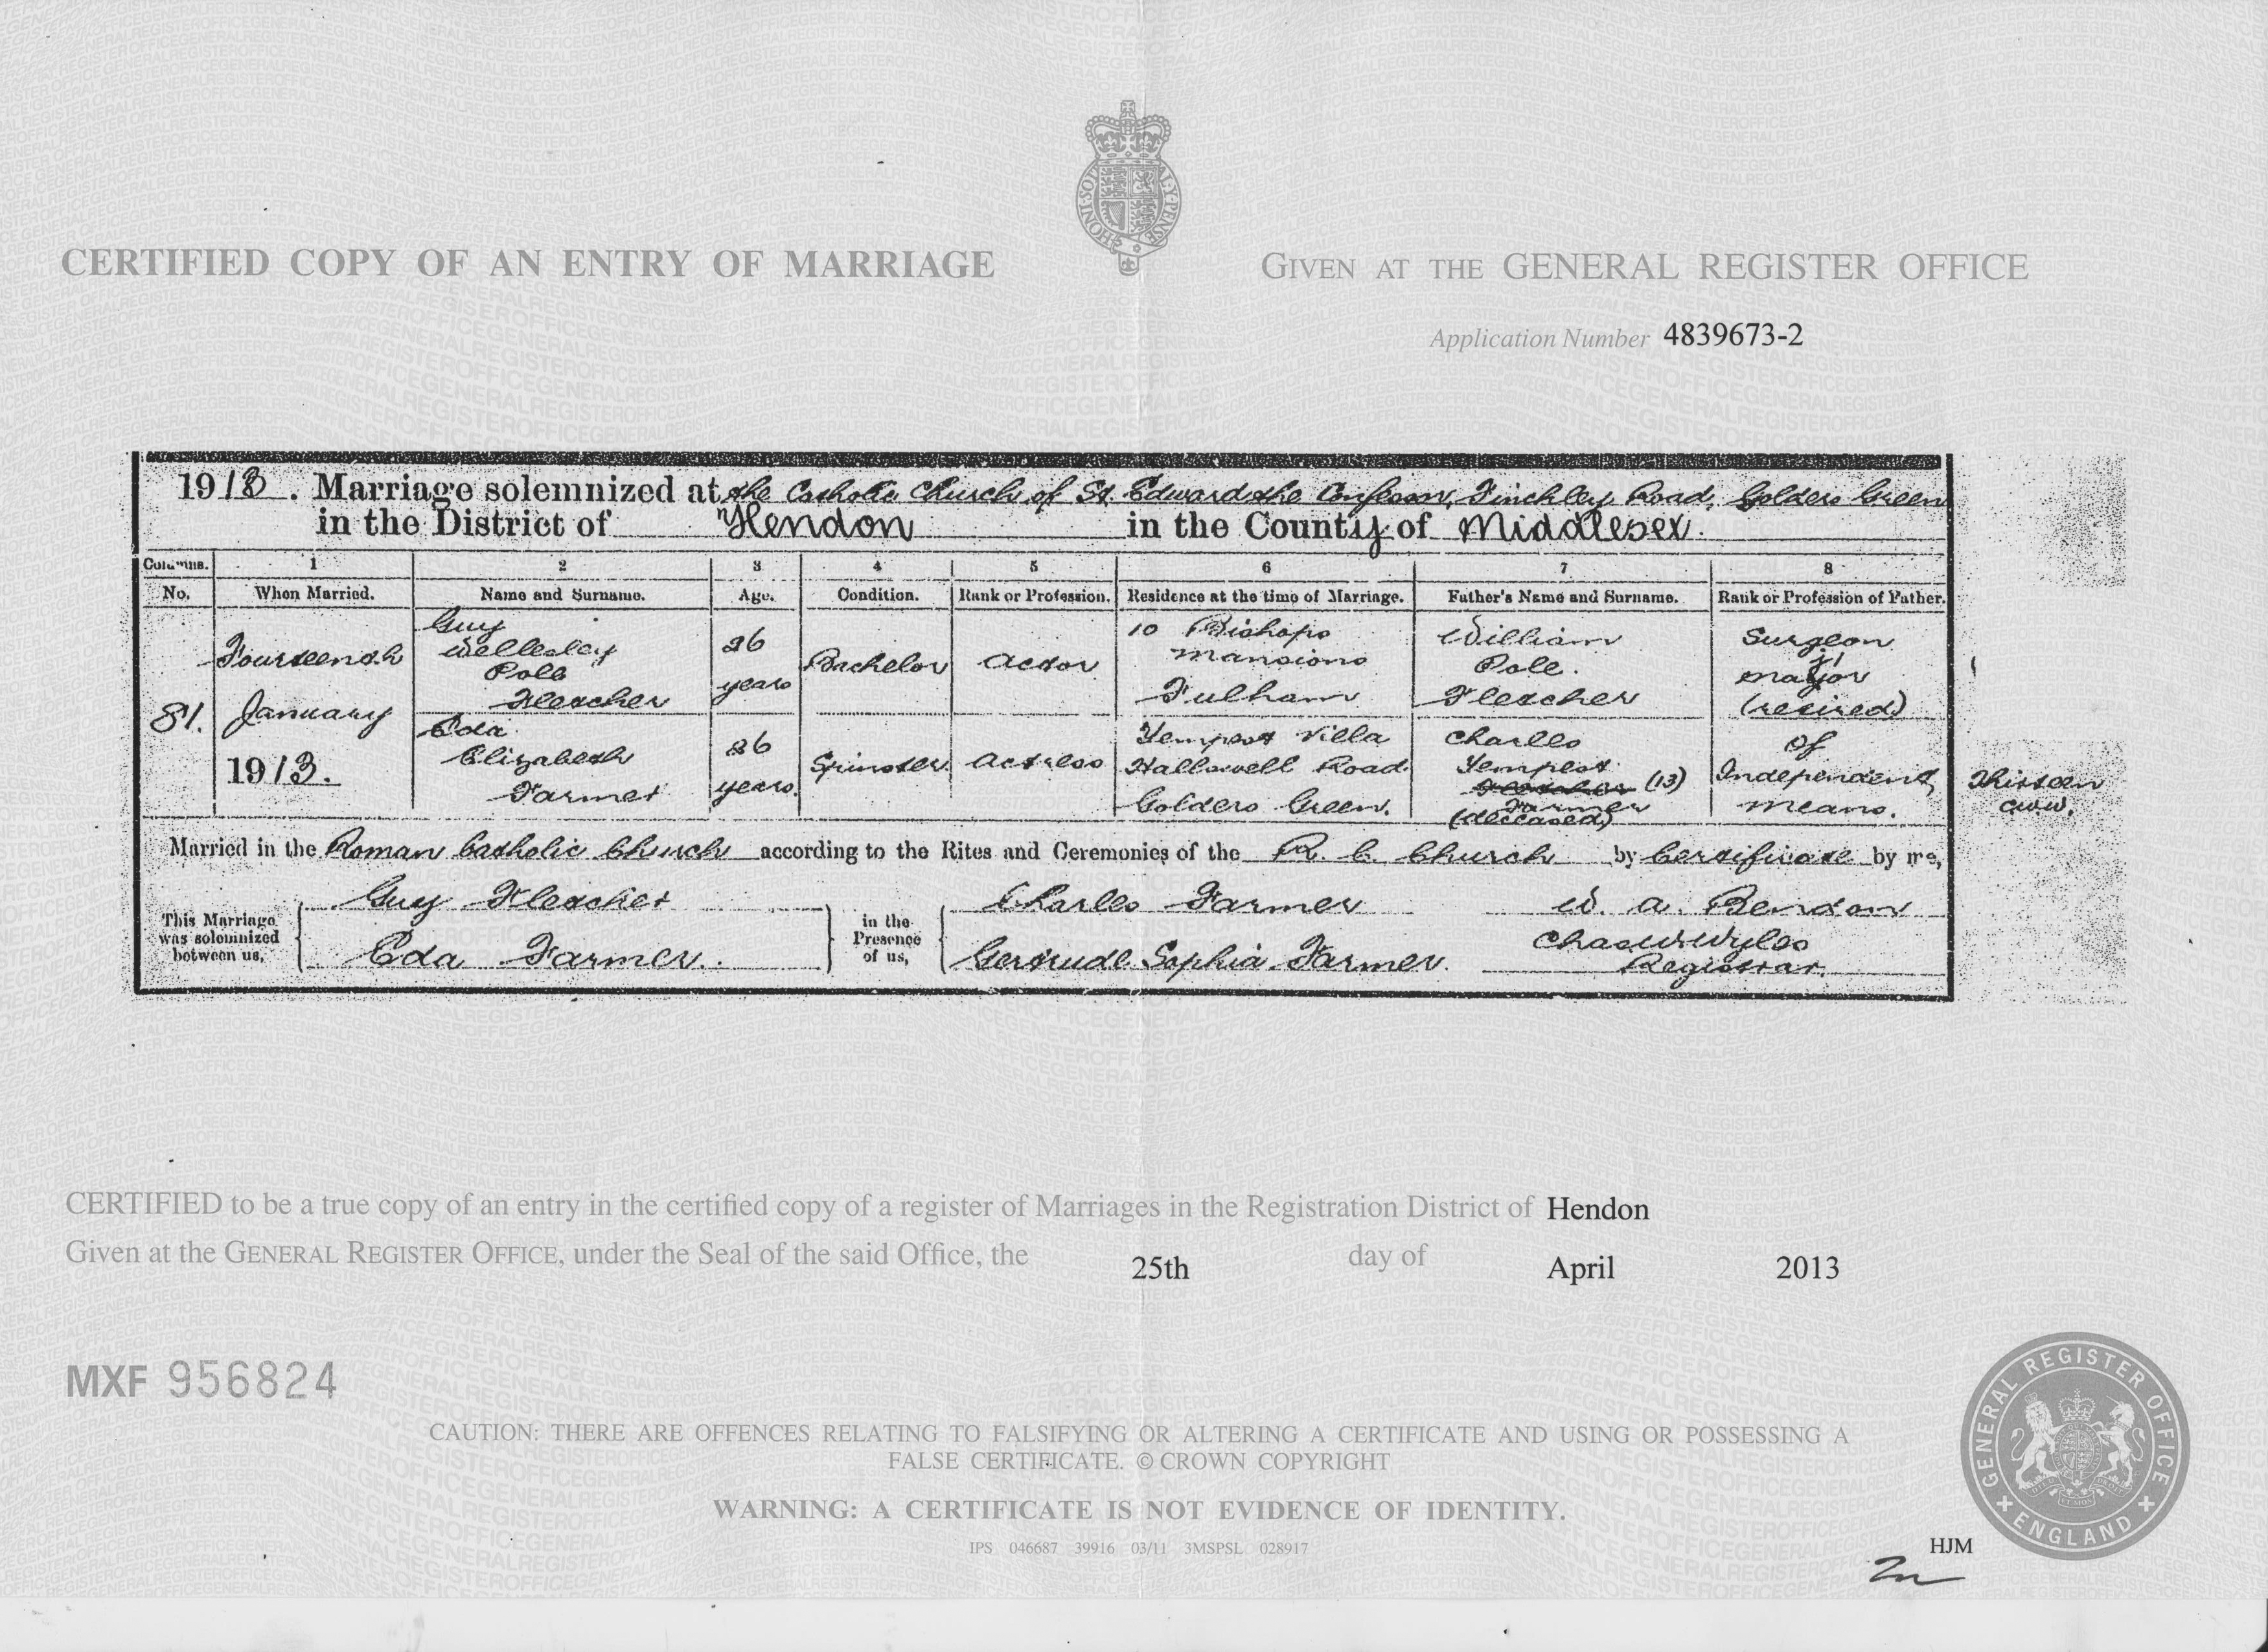 CERTIFIED COPY OF AN ENTRY OF MARRIAGE
GIVEN AT THE GENERAL REGISTER OFFICE
Application Number 4839673-2
1913. Marriage solemnized at the Catholic Church of St. Edward the Confessor, Finchley Road, Golders Green
in the District of Hendon in the County of Middlesex.
Columns. 1 2 3 4 5 6 7 8
No. When Married. Name and Surname. Age. Condition. Rank or Profession. Residence at the time of Marriage. Father's Name and Surname. Rank or Profession of Father.
81. Fourteenth January 1913.
Guy Wellesley Pole Fletcher
26 years
Bachelor
Actor
10 Bishops Mansions Fulham
William Pole Fletcher
Surgeon Major (retired)
Eda Elizabeth Farmer
26 years.
Spinster
Actress
Tempest Villa Hallswell Road Golders Green.
Charles Tempest Fletcher (13) Farmer (deceased)
Of Independent means.
Thirteen
C.W.W.
Married in the Roman Catholic Church according to the Rites and Ceremonies of the R. C. Church by Certificate by me,
This Marriage was solemnized between us,
Guy Fletcher
Eda Farmer.
in the Presence of us,
Charles Farmer
Gertrude Sophia Farmer.
W. A.
Chas W Wyles
Registrar.
CERTIFIED to be a true copy of an entry in the certified copy of a register of Marriages in the Registration District of Hendon
Given at the GENERAL REGISTER OFFICE, under the Seal of the said Office, the 25th day of April 2013
MXF 956824
CAUTION: THERE ARE OFFENCES RELATING TO FALSIFYING OR ALTERING A CERTIFICATE AND USING OR POSSESSING A
FALSE CERTIFICATE. © CROWN COPYRIGHT
WARNING: A CERTIFICATE IS NOT EVIDENCE OF IDENTITY.
IPS 046687 39916 03/11 3MSPSL 028917
GENERAL REGISTER OFFICE
ENGLAND
HJM